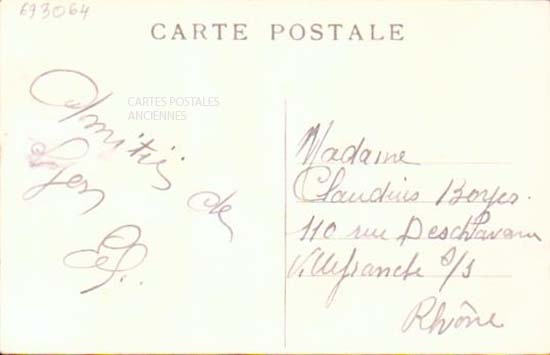 693064
CARTE POSTALE
CARTES POSTALES
ANCIENNES
Amitiés de
Madame
Claudius
110 rue
Villefranche s/s
Rhône